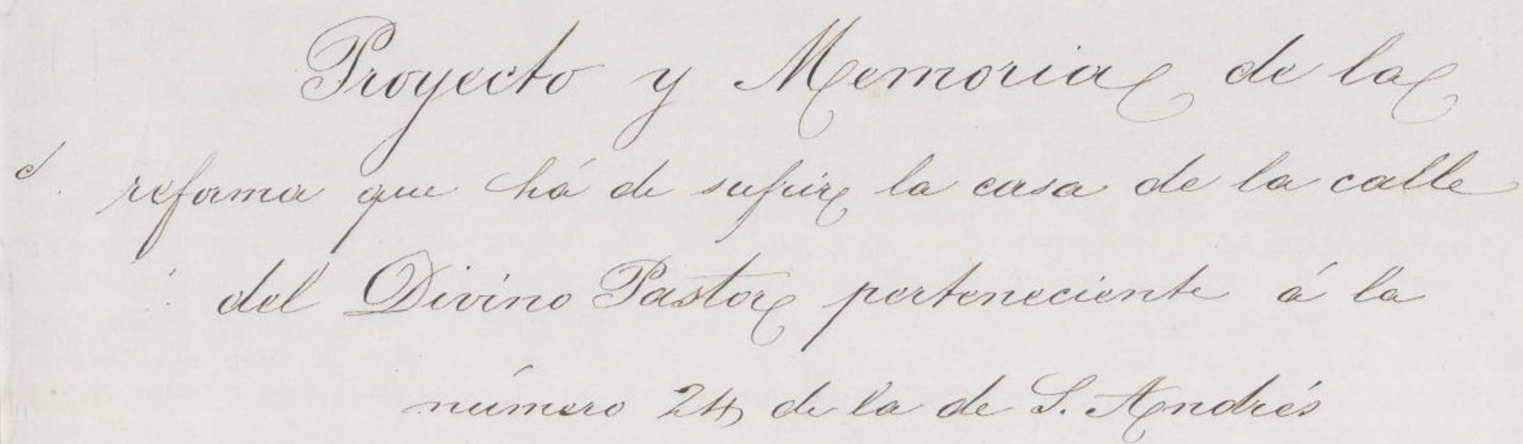 Proyecto y Memoria de la
reforma que há de sufrir la casa de la calle
del Divino Pastor perteneciente á la
número 24 de la de S. Andrés